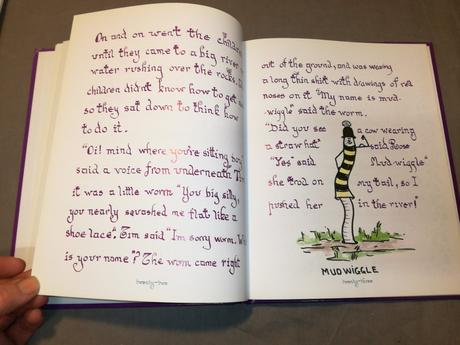 On and on went the children
until they came to a big river
water rushing over the rocks
children didn't know how to get
so they sat down to think how
to do it.
"Oi! mind where you're sitting
said a voice from underneath.
it was a little worm "You big silly,
you nearly squashed me flat like a
shoe lace". Tim said "I'm sorry worm.
is your name"? The worm came right
twenty-two
out of the ground, and was wearing
a long thin shirt with drawings of red
noses on it. "My name is mud-
wiggle" said the worm.
"Did you see a cow wearing
a straw hat" said
"Yes" said Mud-wiggle"
she trod on my tail, so I
pushed her in the river!"
MUDWIGGLE
twenty-three